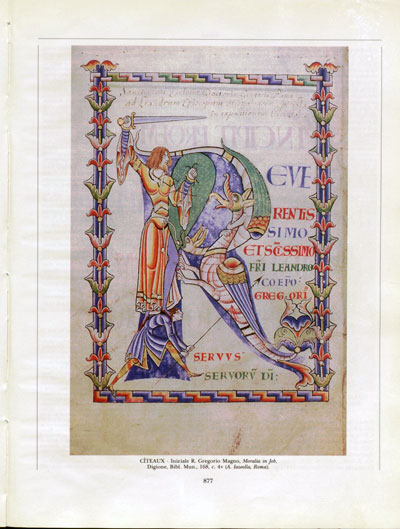 R EVE
RENTIS
SIMO
ET SC̄ISSIMO
FR̄I LEANDRO
COEP̄O·
GREGORI'
SERVVS
SERVORV̄ DĪ:
CÎTEAUX - Iniziale R. Gregorio Magno, Moralia in Job,
Digione, Bibl. Mun., 168, c. 4v (A. Roma).
877